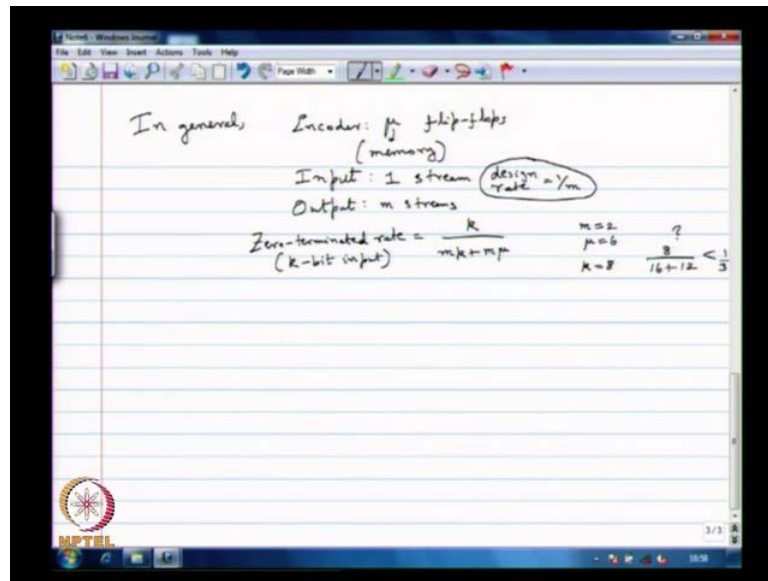 Note6 - Windows Journal
File Edit View Insert Actions Tools Help
Page Width
In general, Encoder: μ flip-flops
(memory)
Input: 1 stream (design rate = 1/m)
Output: m streams
Zero-terminated rate = k / (mk + mμ)
(k-bit input)
m = 2
μ = 6
k = 8
8 / (16 + 12) <? 1/3
3/3
NPTEL
16:58